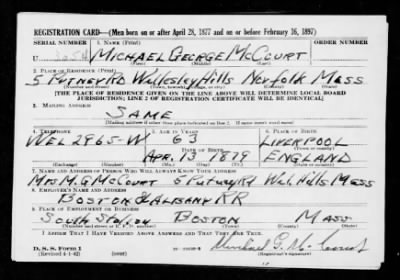 REGISTRATION CARD—(Men born on or after April 28, 1877 and on or before February 16, 1897)
SERIAL NUMBER 1. NAME (Print) ORDER NUMBER
U MICHAEL GEORGE McCOURT
2. PLACE OF RESIDENCE (Print)
5 PUTNEY RD Wellesley Hills Norfolk Mass
[THE PLACE OF RESIDENCE GIVEN ON THE LINE ABOVE WILL DETERMINE LOCAL BOARD
JURISDICTION; LINE 2 OF REGISTRATION CERTIFICATE WILL BE IDENTICAL]
3. MAILING ADDRESS
SAME
[Mailing address if other than place indicated on line 2. If same insert word same]
4. TELEPHONE 5. AGE IN YEARS 6. PLACE OF BIRTH
WEL 2965-W 63 LIVERPOOL
DATE OF BIRTH
APR. 13 1879 ENGLAND
(Exchange) (Number) (Mo.) (Day) (Yr.)
7. NAME AND ADDRESS OF PERSON WHO WILL ALWAYS KNOW YOUR ADDRESS
Mrs M.G. McCourt 5 Putney Rd Wel. Hills Mass
8. EMPLOYER'S NAME AND ADDRESS
BOSTON & ALBANY RR
9. PLACE OF EMPLOYMENT OR BUSINESS
South Station BOSTON MASS
I AFFIRM THAT I HAVE VERIFIED ABOVE ANSWERS AND THAT THEY ARE TRUE.
D. S. S. Form 1
(Revised 4-1-42) (over) Michael G. McCourt